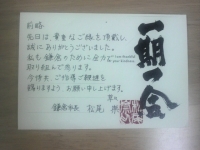 前略
先日は、貴重なご縁を頂戴し、
誠にありがとうございました。
私も鎌倉のために全力で
取り組んで参ります。
今後共ご指導ご鞭撻を
賜りますようお願い申し上げます。
草々
鎌倉市長 松尾 崇
一期一会